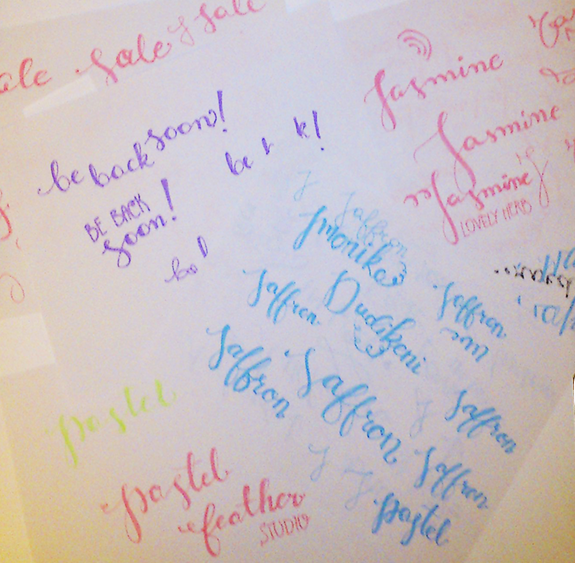 ale Sale Sale
be back soon!
BE BACK
soon!
Jasmine
Jasmine
Jasmine
LOVELY HERB
Saffron
monike
Dudikeni
Saffron
Saffron
Saffron
Saffron
Saffron
Saffron
pastel
pastel
pastel
feather
STUDIO